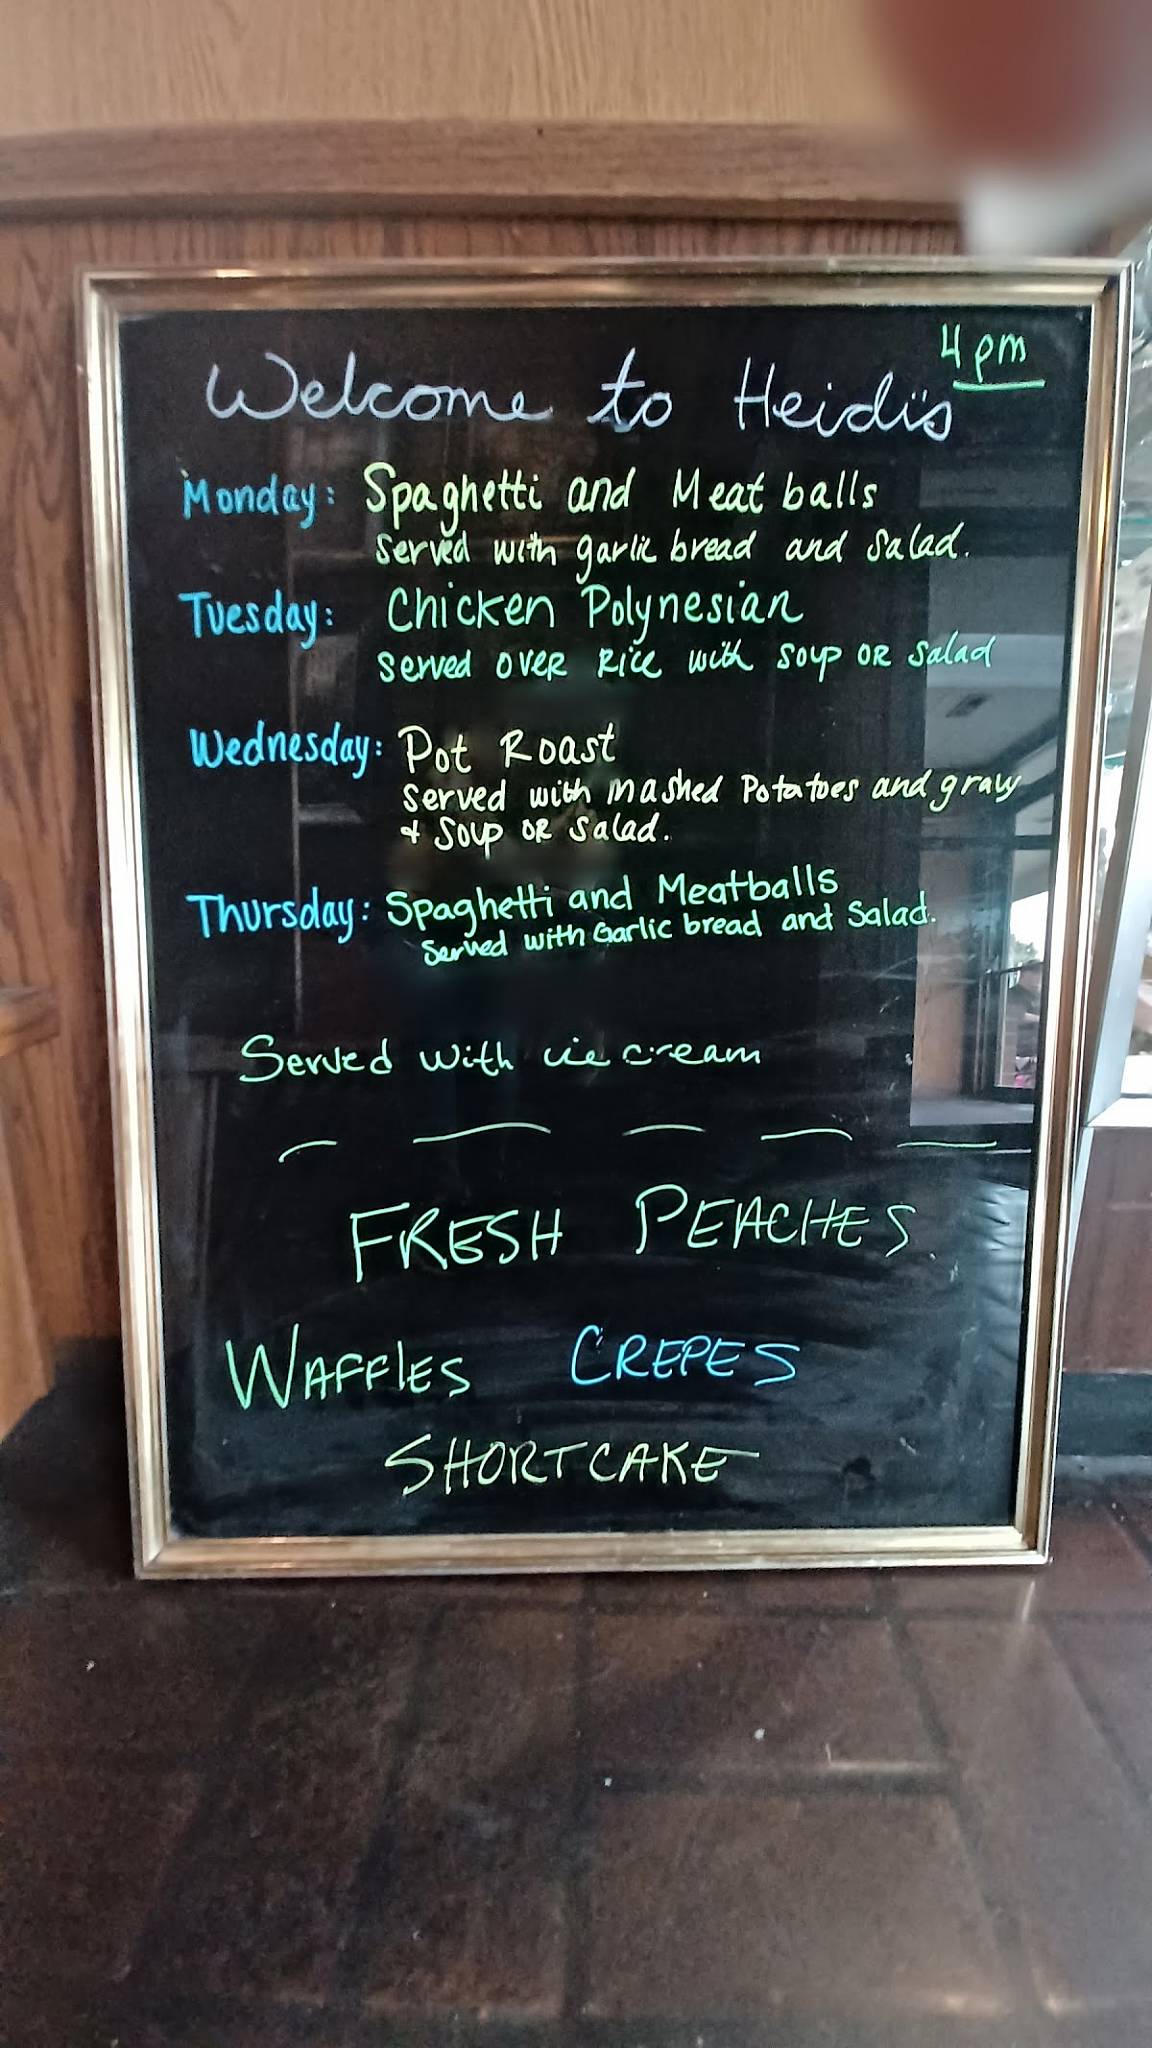 4 pm
Welcome to Heidi's
Monday: Spaghetti and Meat balls
served with garlic bread and salad.
Tuesday: Chicken Polynesian
served over Rice with soup or salad
Wednesday: Pot Roast
served with mashed Potatoes and gravy
+ Soup or Salad.
Thursday: Spaghetti and Meatballs
Served with Garlic bread and Salad.
Served with ice cream
FRESH PEACHES
WAFFlES CREPES
SHORTCAKE